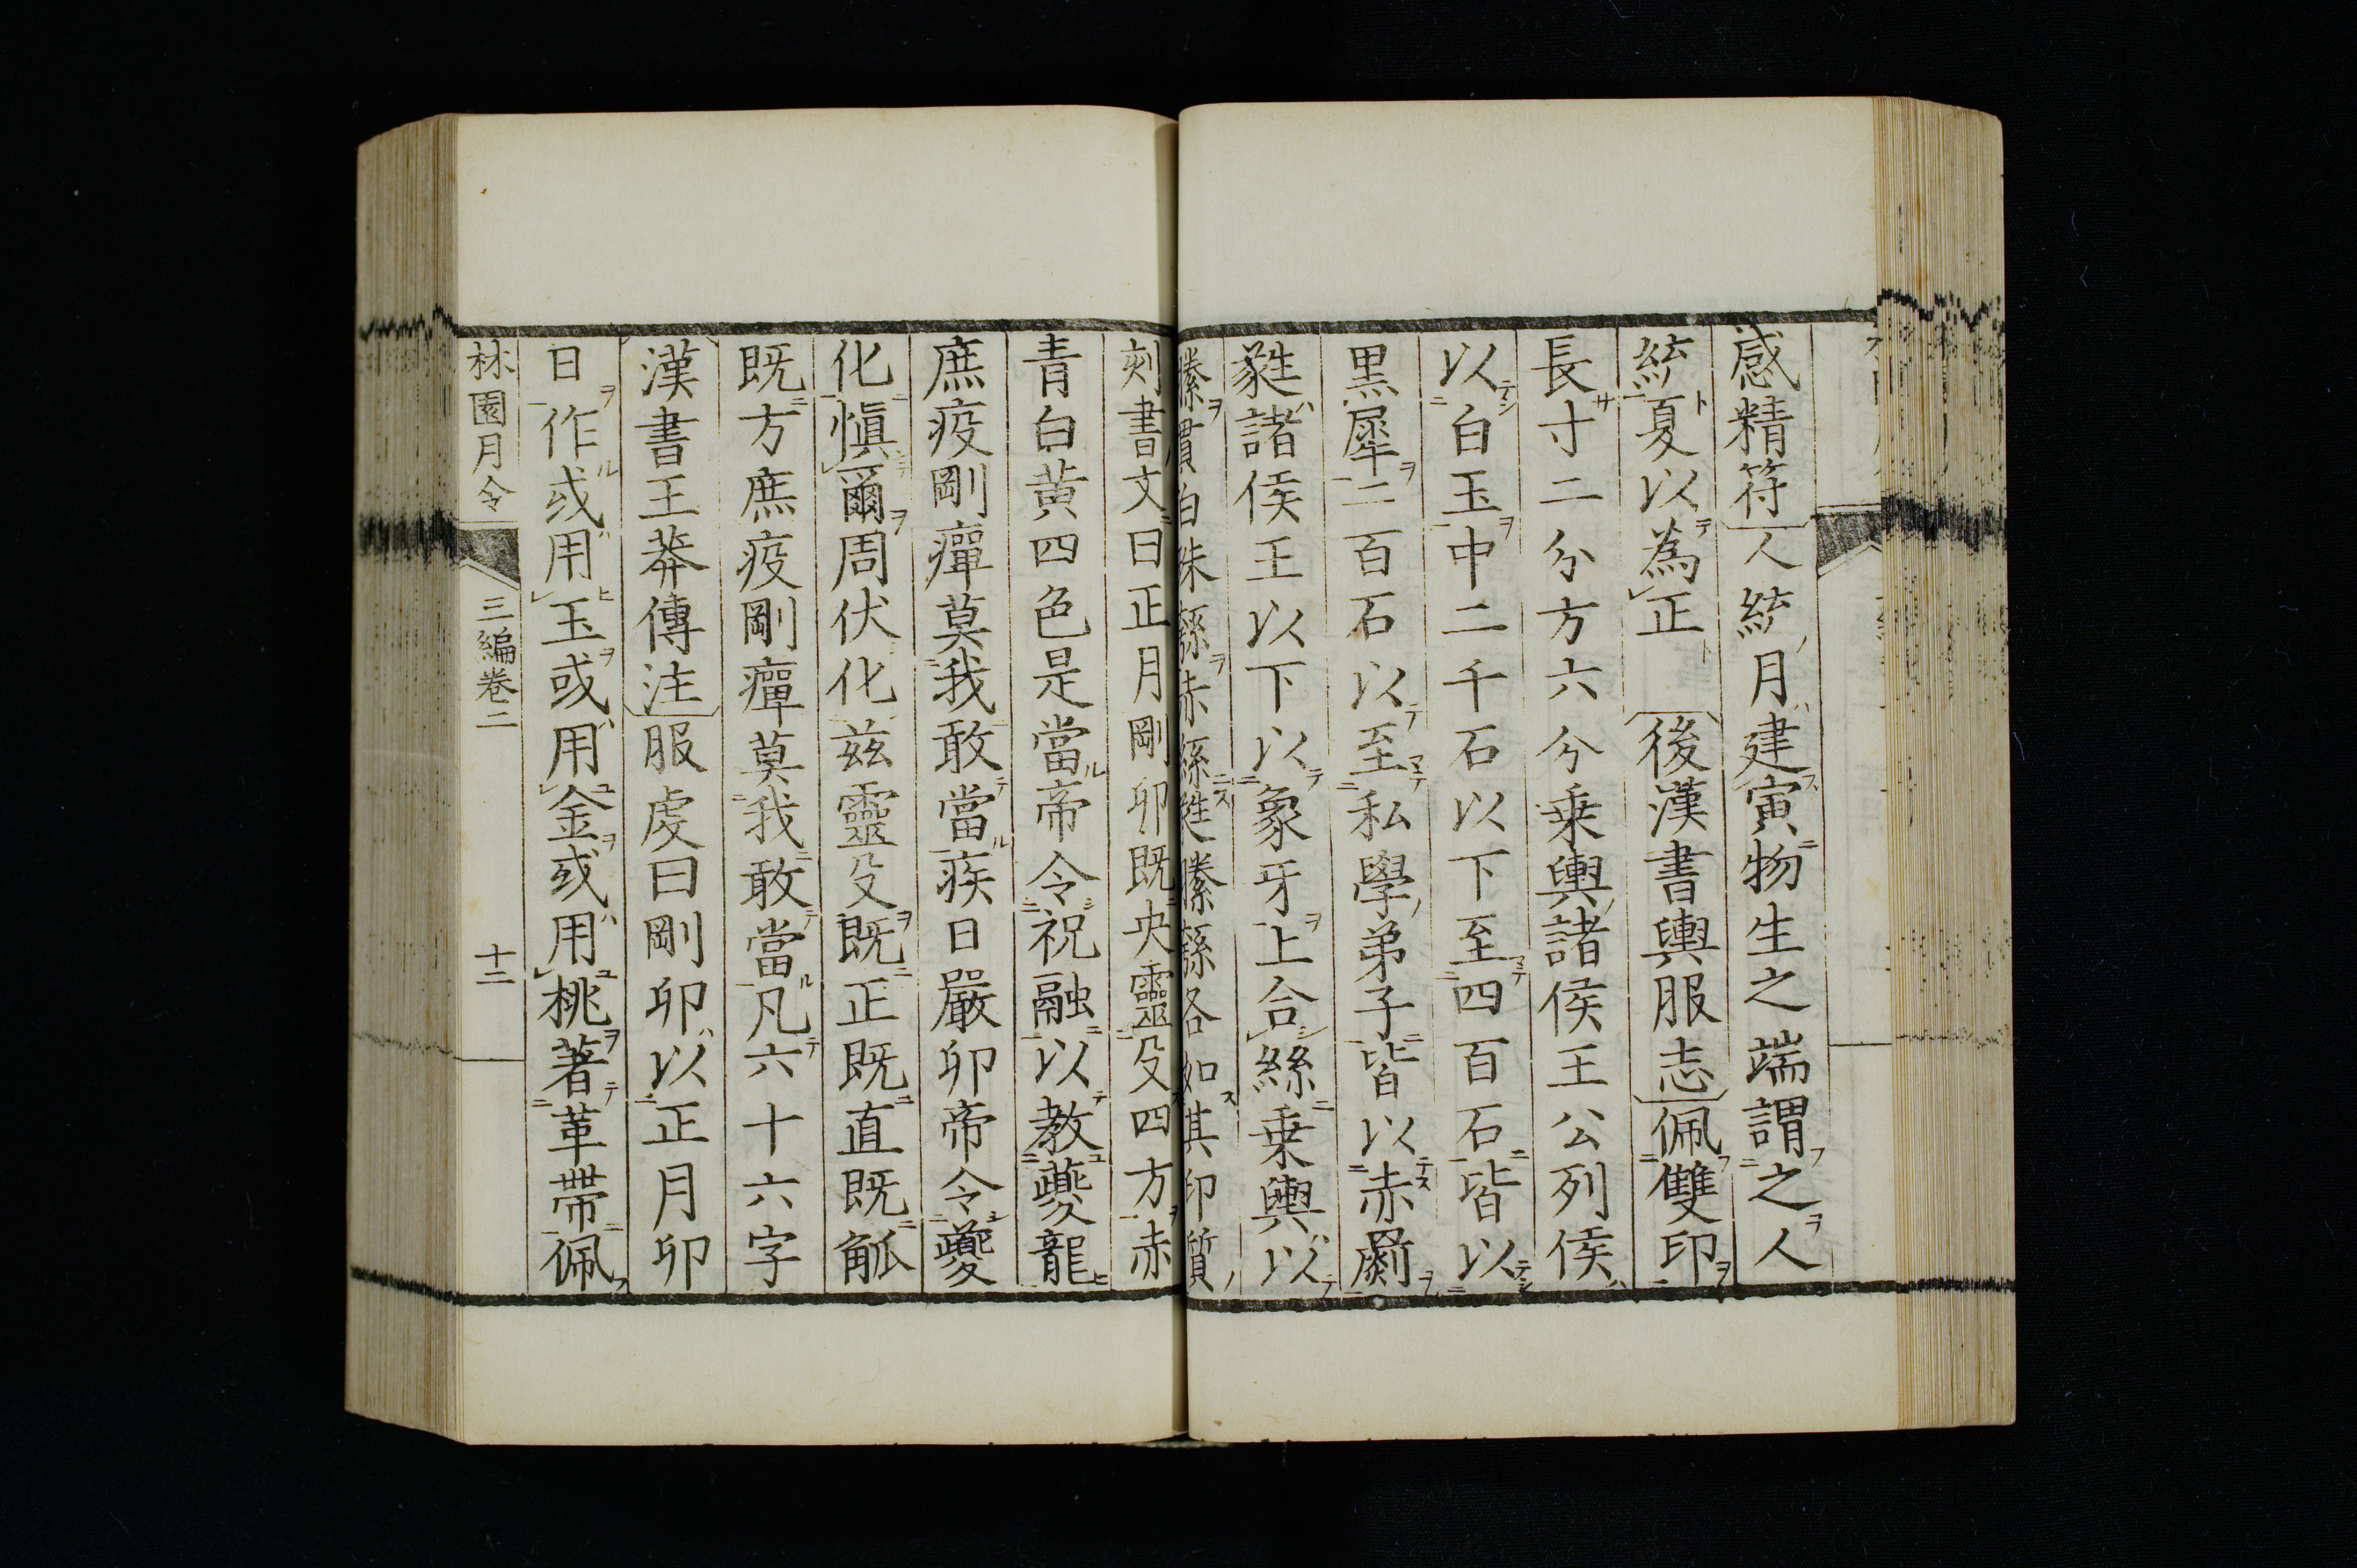 感精符人統月建寅物生之端謂之人
統夏以為正　後漢書輿服志佩雙印
長寸二分方六分乗輿諸侯王公列侯
以白玉中二千石以下至四百石皆以
黒犀二百石以至私學弟子皆以赤罽
蕤諸侯王以下以象牙上合絲乗輿以
縢貫白珠赤罽蕤縢各如其印質
刻書文曰正月剛卯既央靈殳四方赤
青白黄四色是當帝令祝融以教夔龍
庶疫剛癉莫我敢當疾日嚴卯帝令夔
化慎爾周伏化茲靈殳既正既直既觚
既方庶疫剛癉莫我敢當凡六十六字
漢書王莽傳注服虔曰剛卯以正月卯
日作或用玉或用金或用桃著革帶佩
林園月令　三編卷二　十二